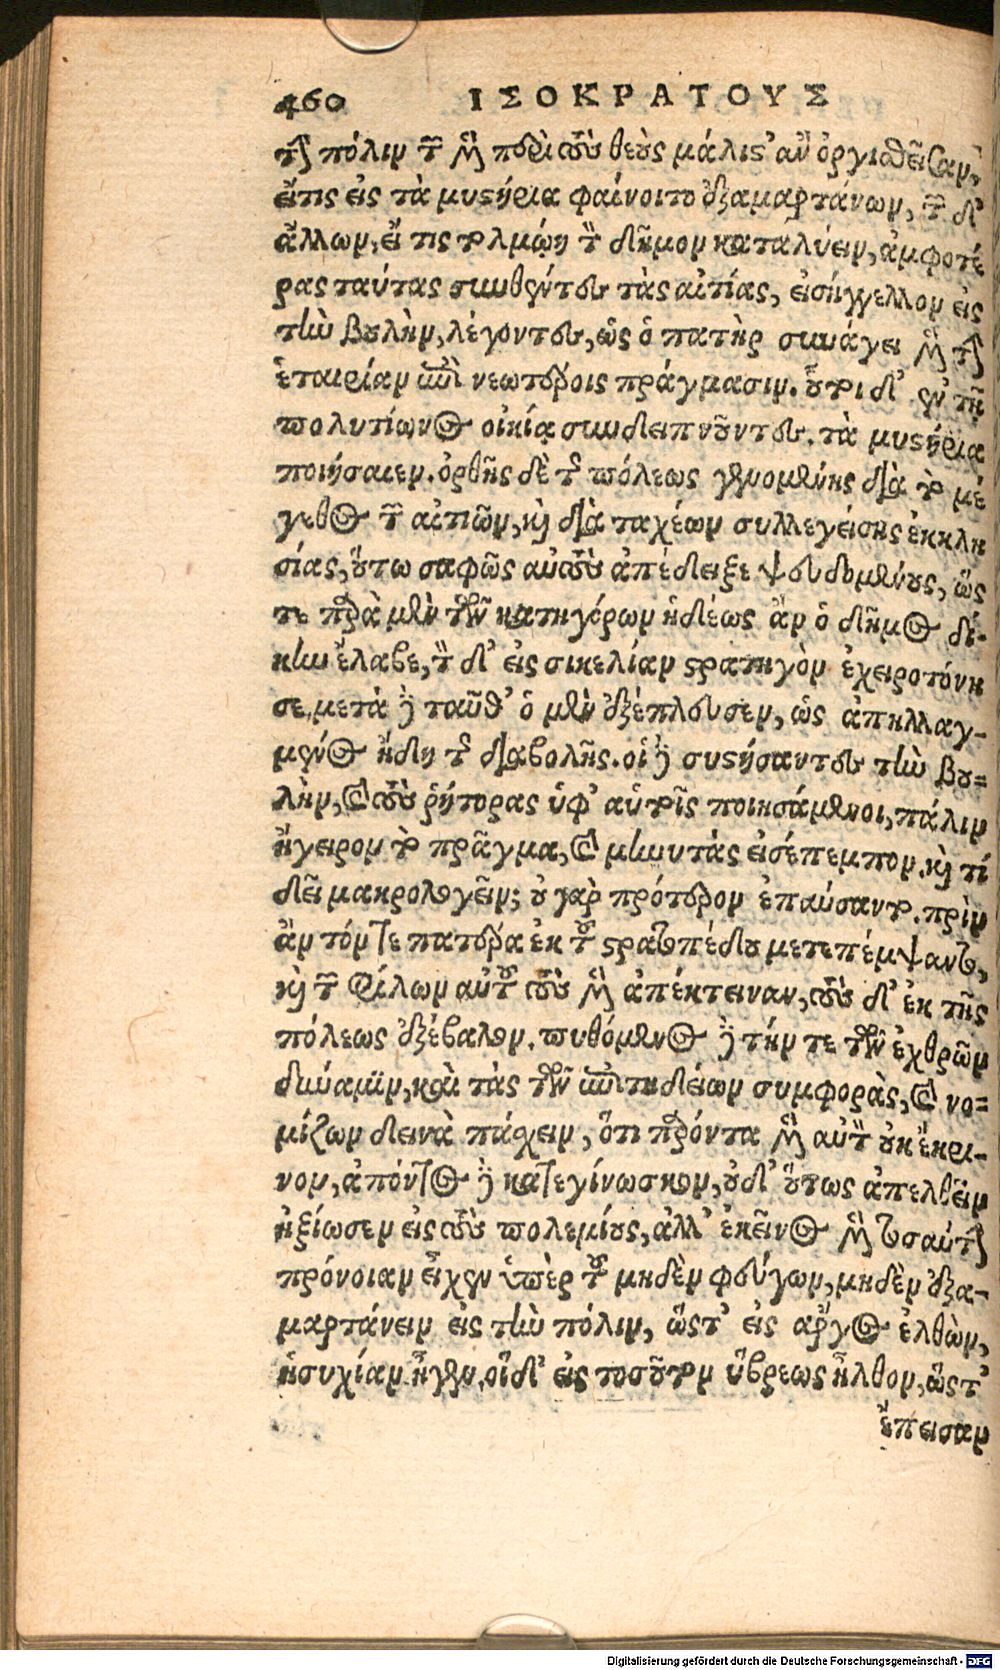 460 ΙΣΟΚΡΑΤΟΥΣ
τὴν πόλιν τῶν μὲν περὶ τοὺς θεοὺς μάλιστ' ἂν ὀργισθεῖσαν,
εἴ τις εἰς τὰ μυστήρια φαίνοιτο ἐξαμαρτάνων, τῶν δ'
ἄλλων, εἴ τις τολμῴη τὸν δῆμον καταλύειν, ἀμφοτέ
ρας ταύτας συνθέντες τὰς αἰτίας, εἰσήγγελλον εἰς
τὴν βουλὴν, λέγοντες, ὡς ὁ πατὴρ συνάγει μὲν τὴν
ἑταιρίαν ἐπὶ νεωτέροις πράγμασιν. οὗτοι δ' ἐν τῇ
πολυτίωνος οἰκίᾳ συνδειπνοῦντες. τὰ μυστήρια
ποιήσαιεν. ὀρθῆς δὲ τῆς πόλεως γενομένης διὰ τὸ μέ
γεθος τῶν αἰτιῶν, καὶ διὰ ταχέων συλλεγείσης ἐκκλη
σίας, οὕτω σαφῶς αὐτοὺς ἀπέδειξε ψευδομένους, ὥς
τε παρὰ μὲν τῶν κατηγόρων ἡδέως ἂν ὁ δῆμος δί-
κην ἔλαβε, τὸν δ' εἰς σικελίαν στρατηγὸν ἐχειροτόνη
σε. μετὰ δὲ ταῦθ' ὁ μὲν ἐξέπλευσεν, ὡς ἀπηλλαγ-
μένος ἤδη τῆς διαβολῆς. οἱ δὲ συστήσαντες τὴν βου=
λὴν, καὶ τοὺς ῥήτορας ὑφ' αὑτοῖς ποιησάμενοι, πάλιν
ἤγειρον τὸ πρᾶγμα, καὶ μηνυτὰς εἰσέπεμπον. καὶ τί
δεῖ μακρολογεῖν; οὐ γὰρ πρότερον ἐπαύσαντο. πρὶν
ἂν τόν τε πατέρα ἐκ τοῦ στρατοπέδου μετεπέμψαντο,
καὶ τῶν φίλων αὐτοῦ τοὺς μὲν ἀπέκτειναν, τοὺς δ' ἐκ τῆς
πόλεως ἐξέβαλον. πυθόμενος δὲ τήν τε τῶν ἐχθρῶν
δύναμιν, καὶ τὰς τῶν ἐπιτηδείων συμφορὰς, καὶ νο=
μίζων δεινὰ πάσχειν, ὅτι παρόντα μὲν αὐτὸν οὐκ ἔκρι-
νον, ἀπόντος δὲ κατεγίνωσκον, οὐδ' οὕτως ἀπελθεῖν
ἠξίωσεν εἰς τοὺς πολεμίους, ἀλλ' ἐκεῖνος μὲν τοσαύτην
πρόνοιαν εἶχεν ὑπὲρ τοῦ μηδὲν φεύγων, μηδὲν ἐξα-
μαρτάνειν εἰς τὴν πόλιν, ὥστ' εἰς ἄργος ἐλθὼν,
ἡσυχίαν ἦγεν. οἳ δ' εἰς τοσοῦτον ὕβρεως ἦλθον, ὥστ'
ἔπεισαν
Digitalisierung gefördert durch die Deutsche Forschungsgemeinschaft - DFG